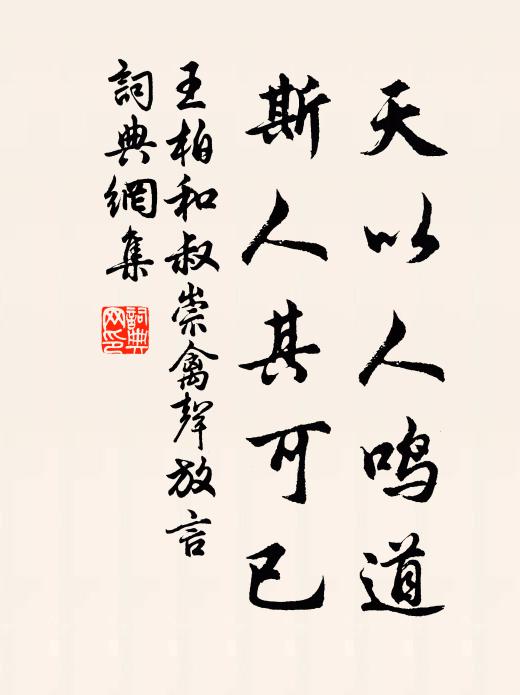 天以人鸣道
斯人其可已
王柏和叔崇禽聲放言
詞典網集
詞典网印